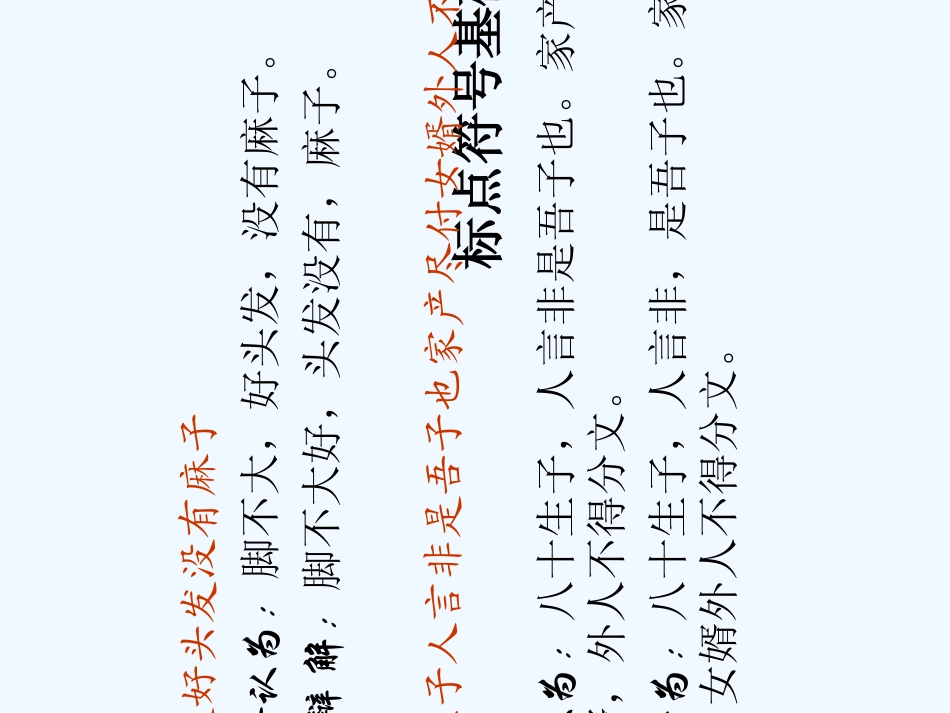 好头发没有麻子
认为：脚不大，好头发，没有麻子。
辩解：脚不大好，头发没有，麻子。
标点符号基
子人言非是吾子也家产尽付女婿外人不
为：八十生子，人言非是吾子也。家产
，外人不得分文。
为：八十生子，人言非，是吾子也。家
女婿外人不得分文。